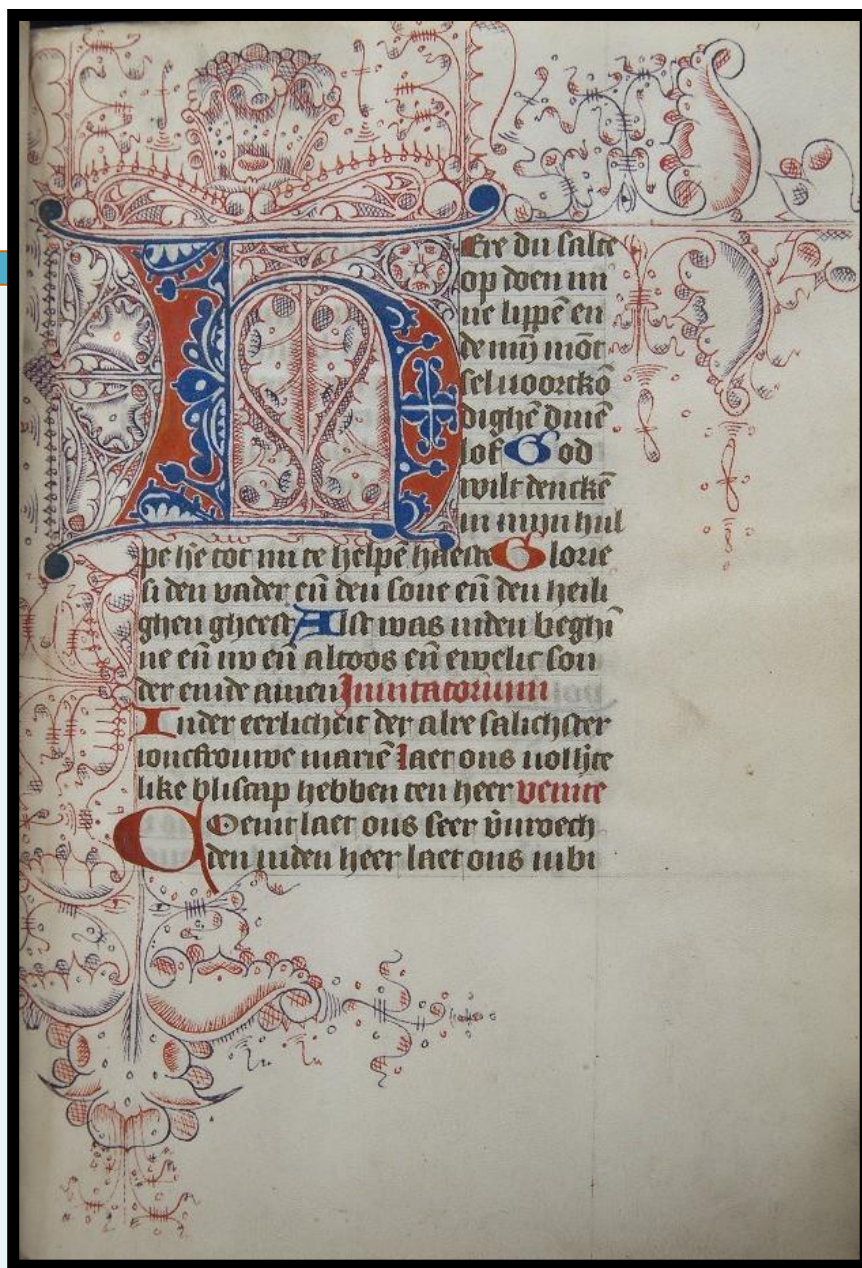 HEre du salte
op doen mi
ne lippē en
de mijn mōt
sel voortkō
dighē dinē
lof God
wilt denckē
in mijn hul
pe h̄e tot mi te helpē haeste Glorie
si den vader eñ den sone eñ den heili
ghen gheest Alst was inden beghī
ne eñ nv eñ altoos eñ ewelic son
der einde amen Inuitatorium
Inder eerlicheit der alre salichster
ioncfrouwe mariē laet ons vollijc
like bliscap hebben ten heer venite
COemt laet ons seer v̄uroech
den inden heer laet ons iubi